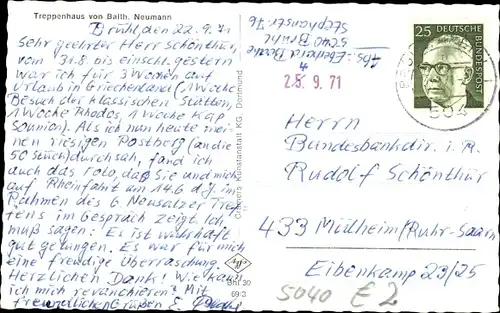 Treppenhaus von Balth. Neumann
Brühl, den 22.9.71
Sehr geehrter Herr Schönthür,
vom 31.8 bis einschl. gestern
war ich für 3 Wochen auf
Urlaub in Griechenland (1 Woche
Besuch der klassischen Stätten,
1 Woche Rhodos, 1 Woche Kap
Sounion). Als ich nun heute mei-
nen riesigen Postberg (an die
50 Stück) durchsah, fand ich
auch das Foto, daß Sie und mich
auf Rheinfahrt am 14.6 d.J. im
Rahmen des 6. Neusalzer Tref-
fens im Gespräch zeigt. Ich
muß sagen: Es ist wahrhaft
gut gelungen. Es war für mich
eine freudige Überraschung.
Herzlichen Dank! Wie kann
ich mich revanchieren? Mit
freundlichen Grüßen E.
Abs: Eberhard
5040 Brühl
Stephanstr. 76
25. 9. 71
25
DEUTSCHE
BUNDESPOST
504
Herrn
Bundesbankdir. i. R.
Rudolf Schönthür
433 Mülheim (Ruhr-Saarn
Eibenkamp 23/25
5040 E 2
Kunstanstalt KG, Dortmund
Bhl 30
69 3